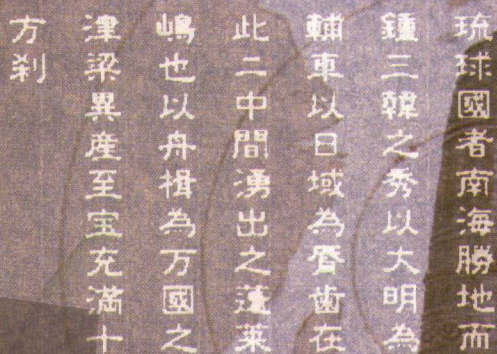 琉球國者南海勝地而
鍾三韓之秀以大明為
輔車以日域為脣歯在
此二中間湧出之蓬萊
嶋也以舟楫為万國之
津梁異産至宝充満十
方刹